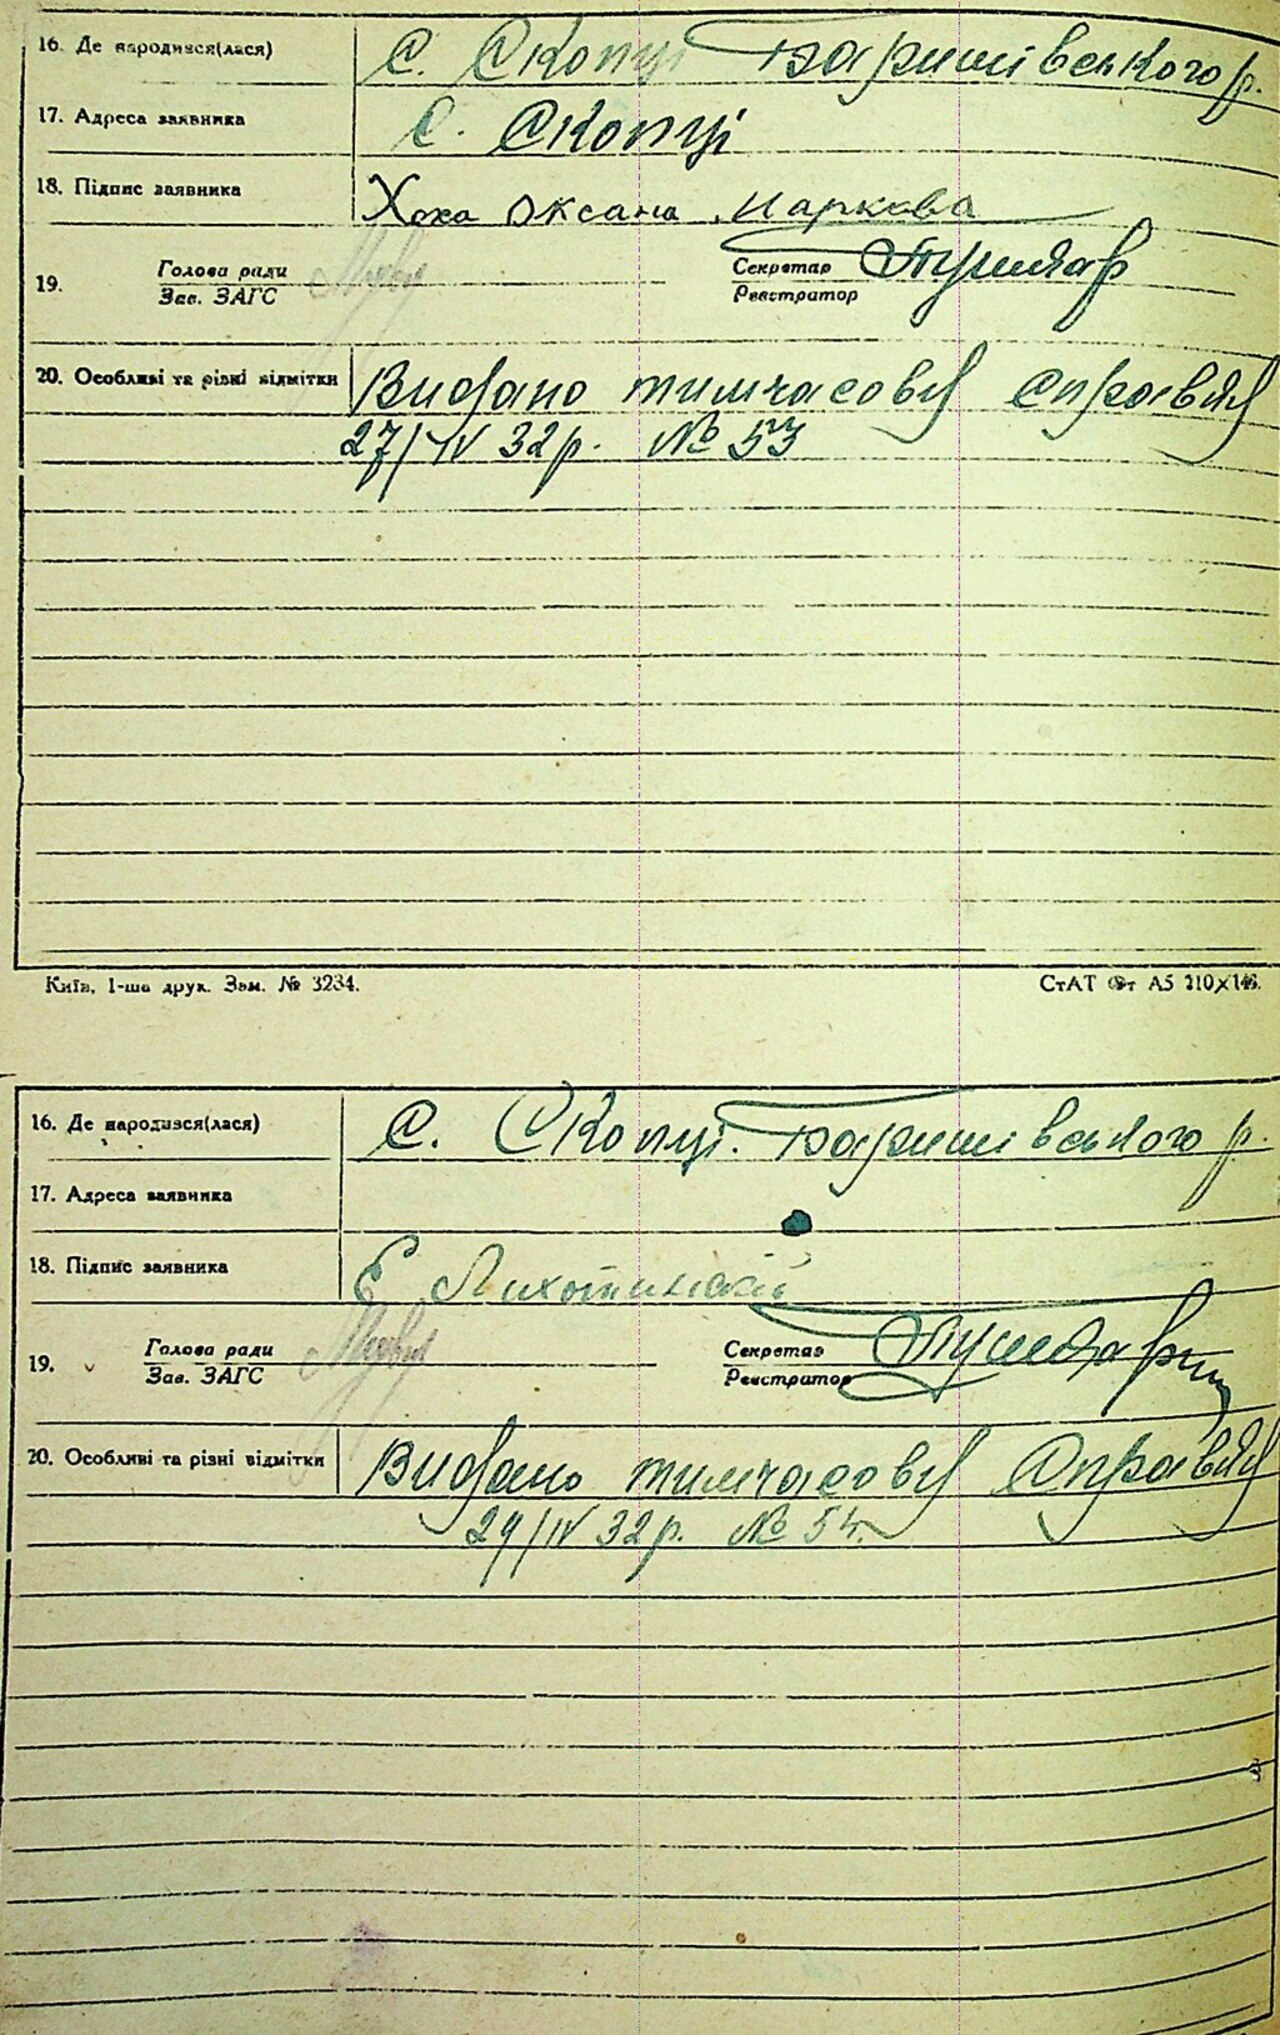 16. Де народився(лася) С. Скопці Баришівського р.
17. Адреса заявника С. Скопці
18. Підпис заявника Хоха Оксана Маркова
19. Голова ради Секретар
Зав. ЗАГС Реєстратор
20. Особливі та різні відмітки Видано тимчасову справку
27/IV 32 р. № 53
Київ, 1-ша друк. Зам. № 3234. СтАТ Фт А5 210×146.
16. Де народився(лася) С. Скопці. Баришівського р.
17. Адреса заявника
18. Підпис заявника Є
19. Голова ради Секретар
Зав. ЗАГС Реєстратор
20. Особливі та різні відмітки Видано тимчасову Справку
29/IV 32 р. № 54.